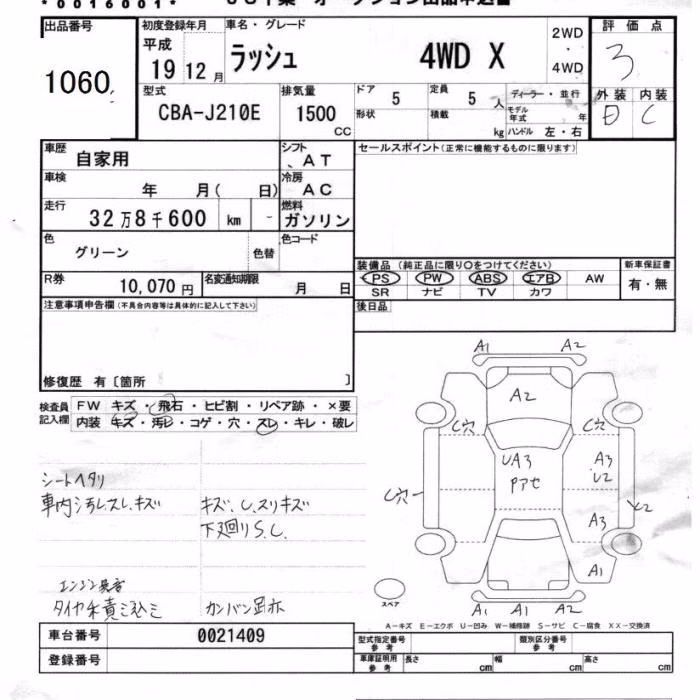 *0016001*
出品番号 1060
初度登録年月 平成 19 12月
車名・グレード ラッシュ 4WD X
2WD ・ 4WD
評価点 3
外装 内装
D C
型式 CBA-J210E
排気量 1500 CC
ドア 5
定員 5 人
ディーラー・並行
形状
積載 kg
モデル年式 年
ハンドル 左・右
車歴 自家用
シフト AT
セールスポイント(正常に機能するものに限ります)
車検 年 月( 日)
冷房 AC
走行 32万8千600 km -
燃料 ガソリン
色 グリーン 色替
色コード
装備品 (純正品に限り○をつけてください)
新車保証書
PS PW ABS エアB AW
SR ナビ TV カワ
有・無
R券 10,070円
名変通知期限 月 日
後日品
注意事項申告欄(不具合内容等は具体的に記入して下さい)
修復歴 有〔箇所 〕
検査員記入欄
FW キズ・飛石・ヒビ割・リペア跡・×要
内装 キズ・汚レ・コゲ・穴・スレ・キレ・破レ
シートヘタリ
車内汚レスレキズ
キズ、U、スリキズ
下廻りS.C.
エンジン異音
タイヤ未積ミ込ミ
A1 A2
A2
C穴 C穴
UA3
Pアセ
A3
U2
C穴
A3
A1
A1 A1 A2
スペア
A-キズ E-エクボ U-凹み W-補修跡 S-サビ C-腐食 XX-交換済
車台番号 0021409
登録番号
型式指定番号 参考
類別区分番号 参考
車庫証明用 参考 長さ cm 幅 cm 高さ cm